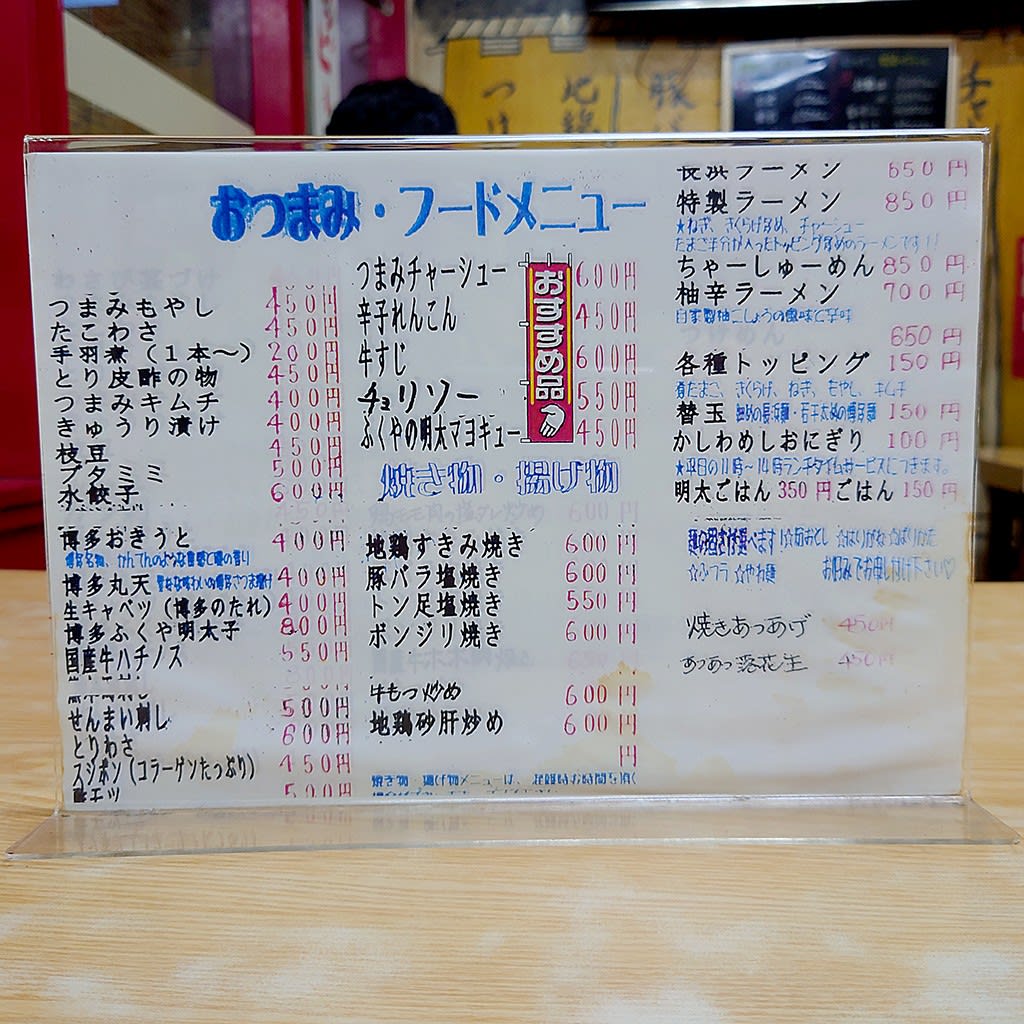 おつまみ・フードメニュー
つまみもやし 450円
たこわさ 450円
手羽煮（1本〜） 200円
とり皮酢の物 450円
つまみキムチ 400円
きゅうり漬け 400円
枝豆 450円
ブタミミ 500円
水餃子 600円
博多おきうと 400円
博多丸天 400円
生キャベツ（博多のたれ） 400円
博多ふくや明太子 800円
国産牛ハチノス 550円
せんまい刺し 500円
とりわさ 600円
スジポン（コラーゲンたっぷり） 450円
500円
おすすめ品
つまみチャーシュー 600円
辛子れんこん 450円
牛すじ 600円
チョリソー 550円
ふくやの明太マヨギュー 450円
焼き物・揚げ物
地鶏すきみ焼き 600円
豚バラ塩焼き 600円
トン足塩焼き 550円
ボンジリ焼き 600円
牛もつ炒め 600円
地鶏砂肝炒め 600円
円
長浜ラーメン 650円
特製ラーメン 850円
★ねぎ、きくらげなめ、チャーシュー
ちゃーしゅーめん 850円
柚辛ラーメン 700円
650円
各種トッピング 150円
煮たまご、きくらげ、ねぎ、もやし、キムチ
替玉 150円
かしわめしおにぎり 100円
★平日の11時〜14時ランチタイムサービスにつきます。
明太ごはん 350円 ごはん 150円
☆ふつう ☆やわ麺 お好みでお申し付け下さい♡
焼きあつあげ 450円
あつあつ落花生 450円